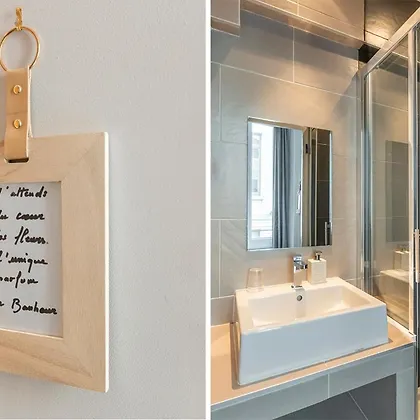 J'attends
du cœur
les fleurs
l'unique
parfum
Bonheur